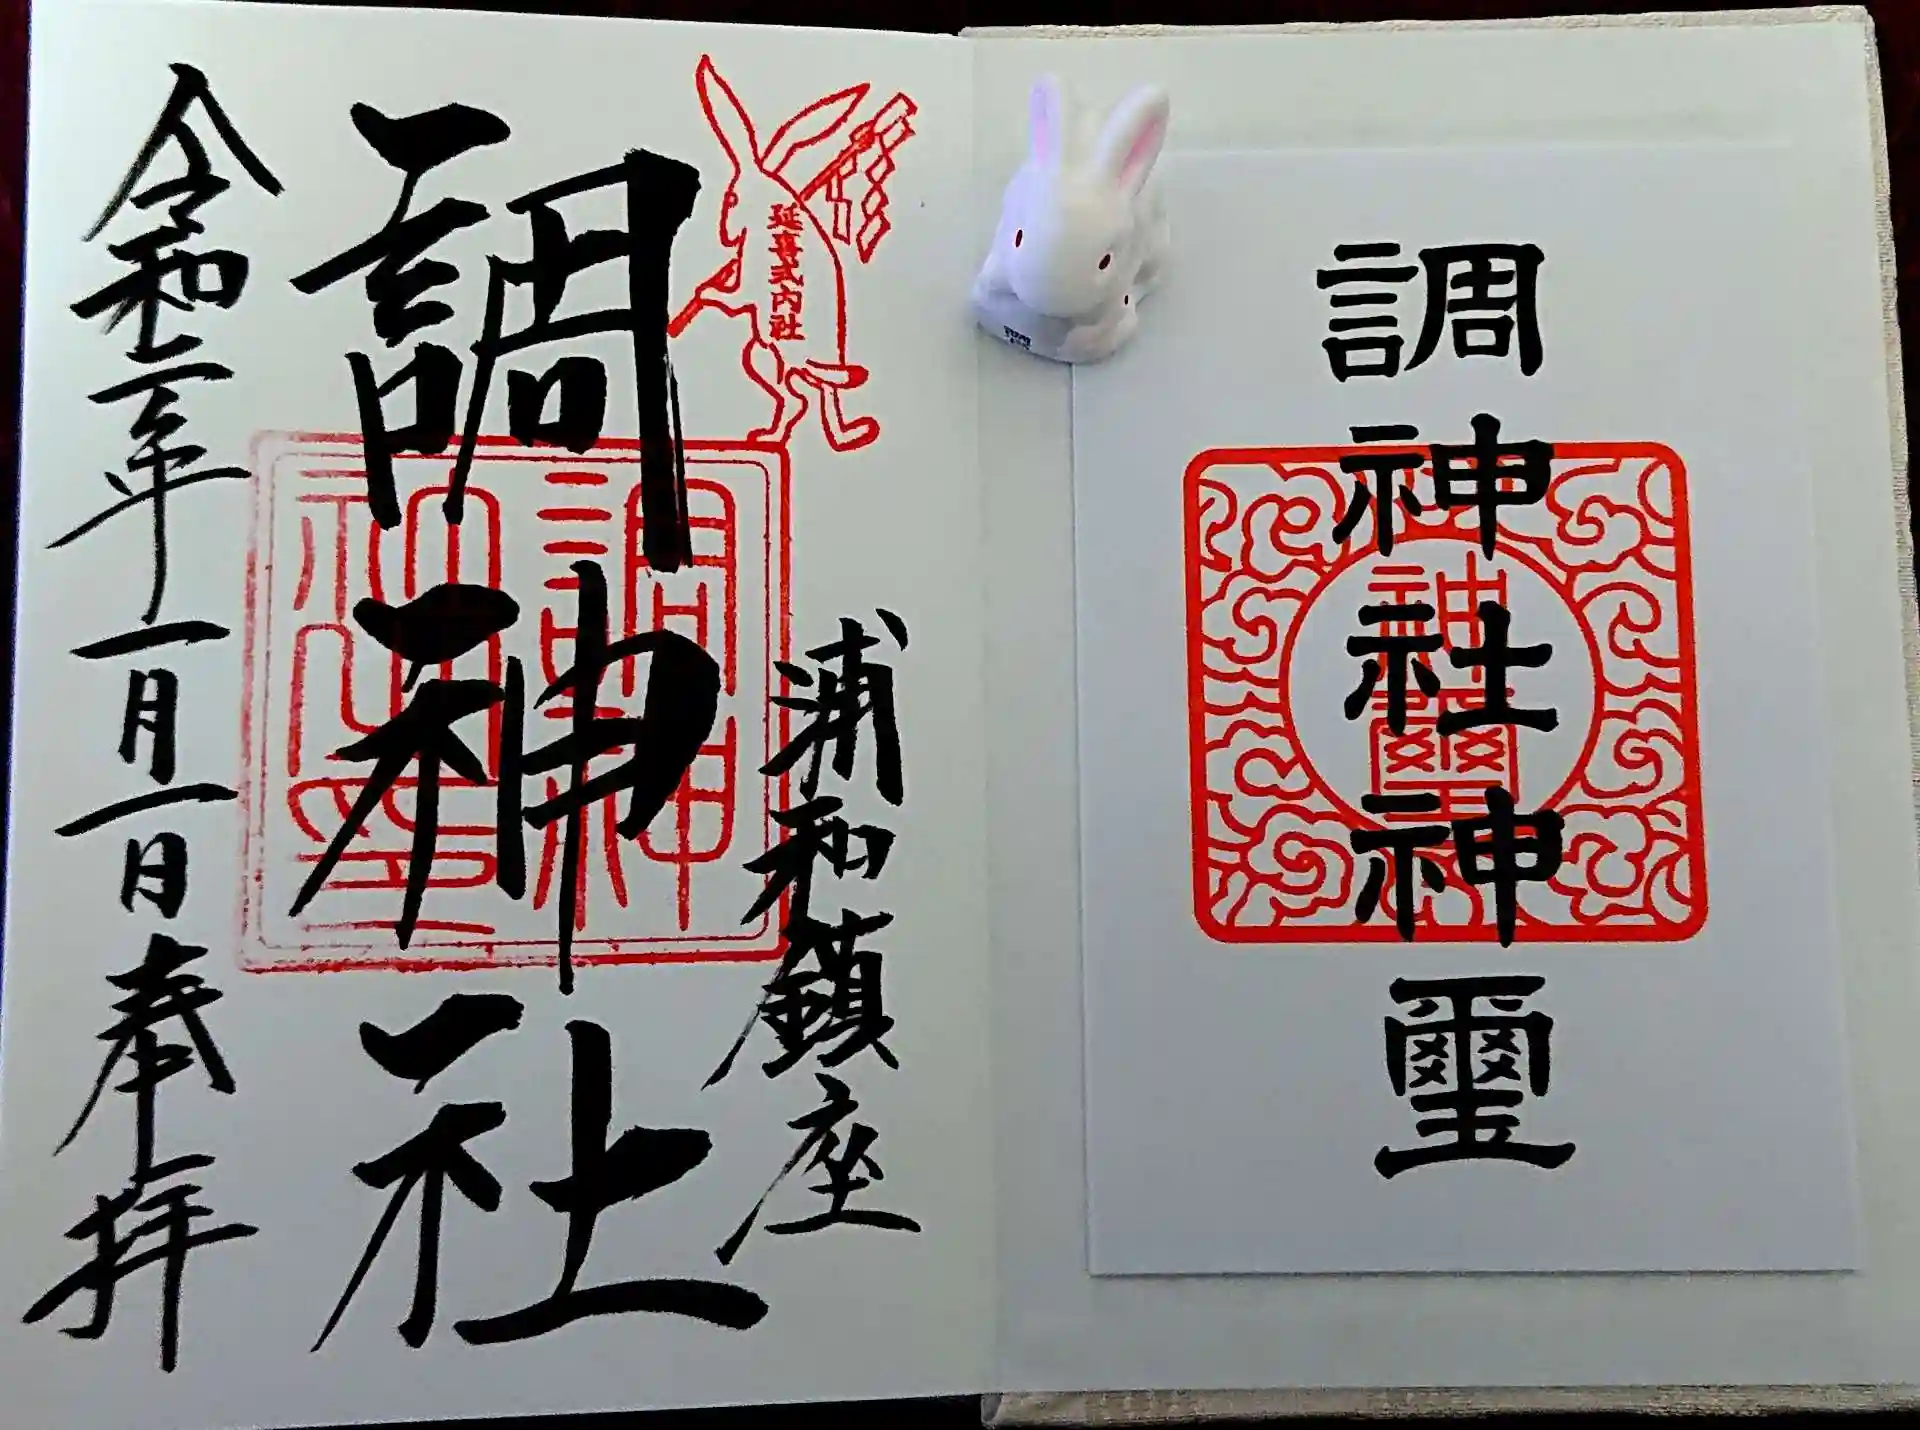 調神社神璽
神璽
延喜式内社
浦和鎮座
調神社
調神
社印
令和二年一月一日奉拝